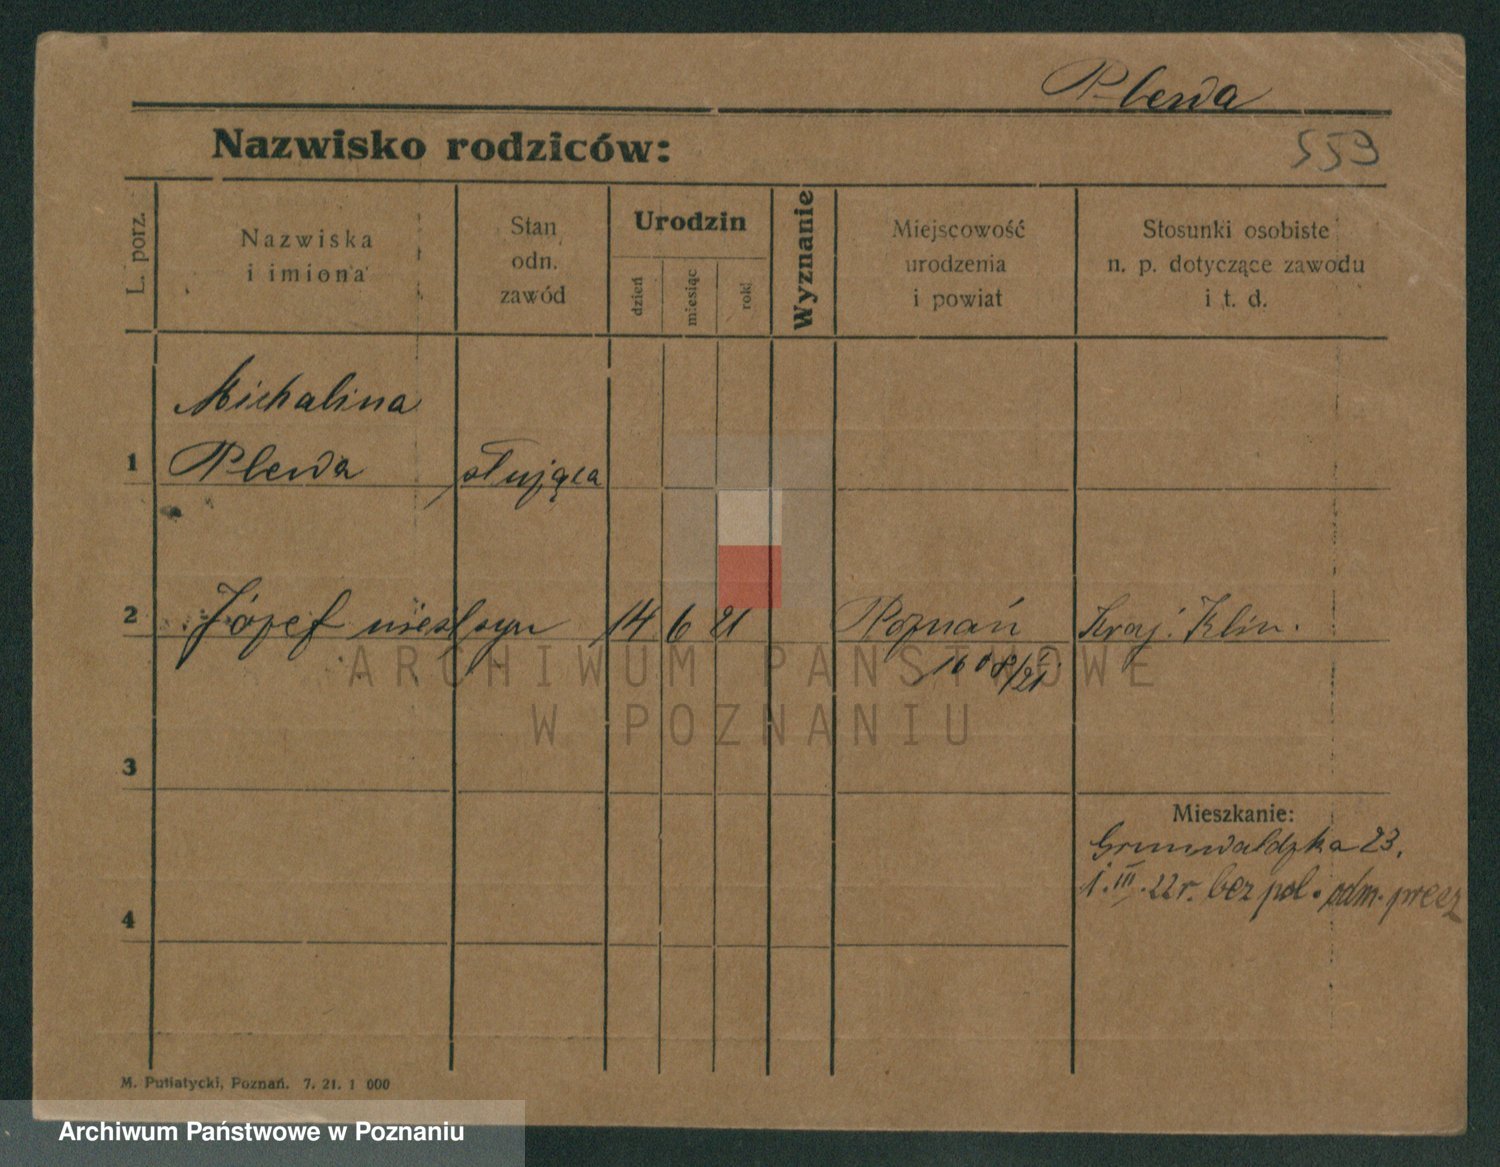 Plewa
Nazwisko rodziców:
559
L. porz.
Nazwiska
i imiona
Stan
odn.
zawód
Urodzin
dzień
miesiąc
rok
Wyznanie
Miejscowość
urodzenia
i powiat
Stosunki osobiste
n. p. dotyczące zawodu
i t. d.
Michalina
1 Plewa służąca
2 Józef nieśl syn 14 6 21 Poznań Kraj. Klin.
3
Mieszkanie:
Grunwaldzka 23.
1. III. 22 r. bez pol. odm. przez
4
M. Putiatycki, Poznań. 7. 21. 1 000
ARCHIWUM PAŃSTWOWE
W POZNANIU
Archiwum Państwowe w Poznaniu